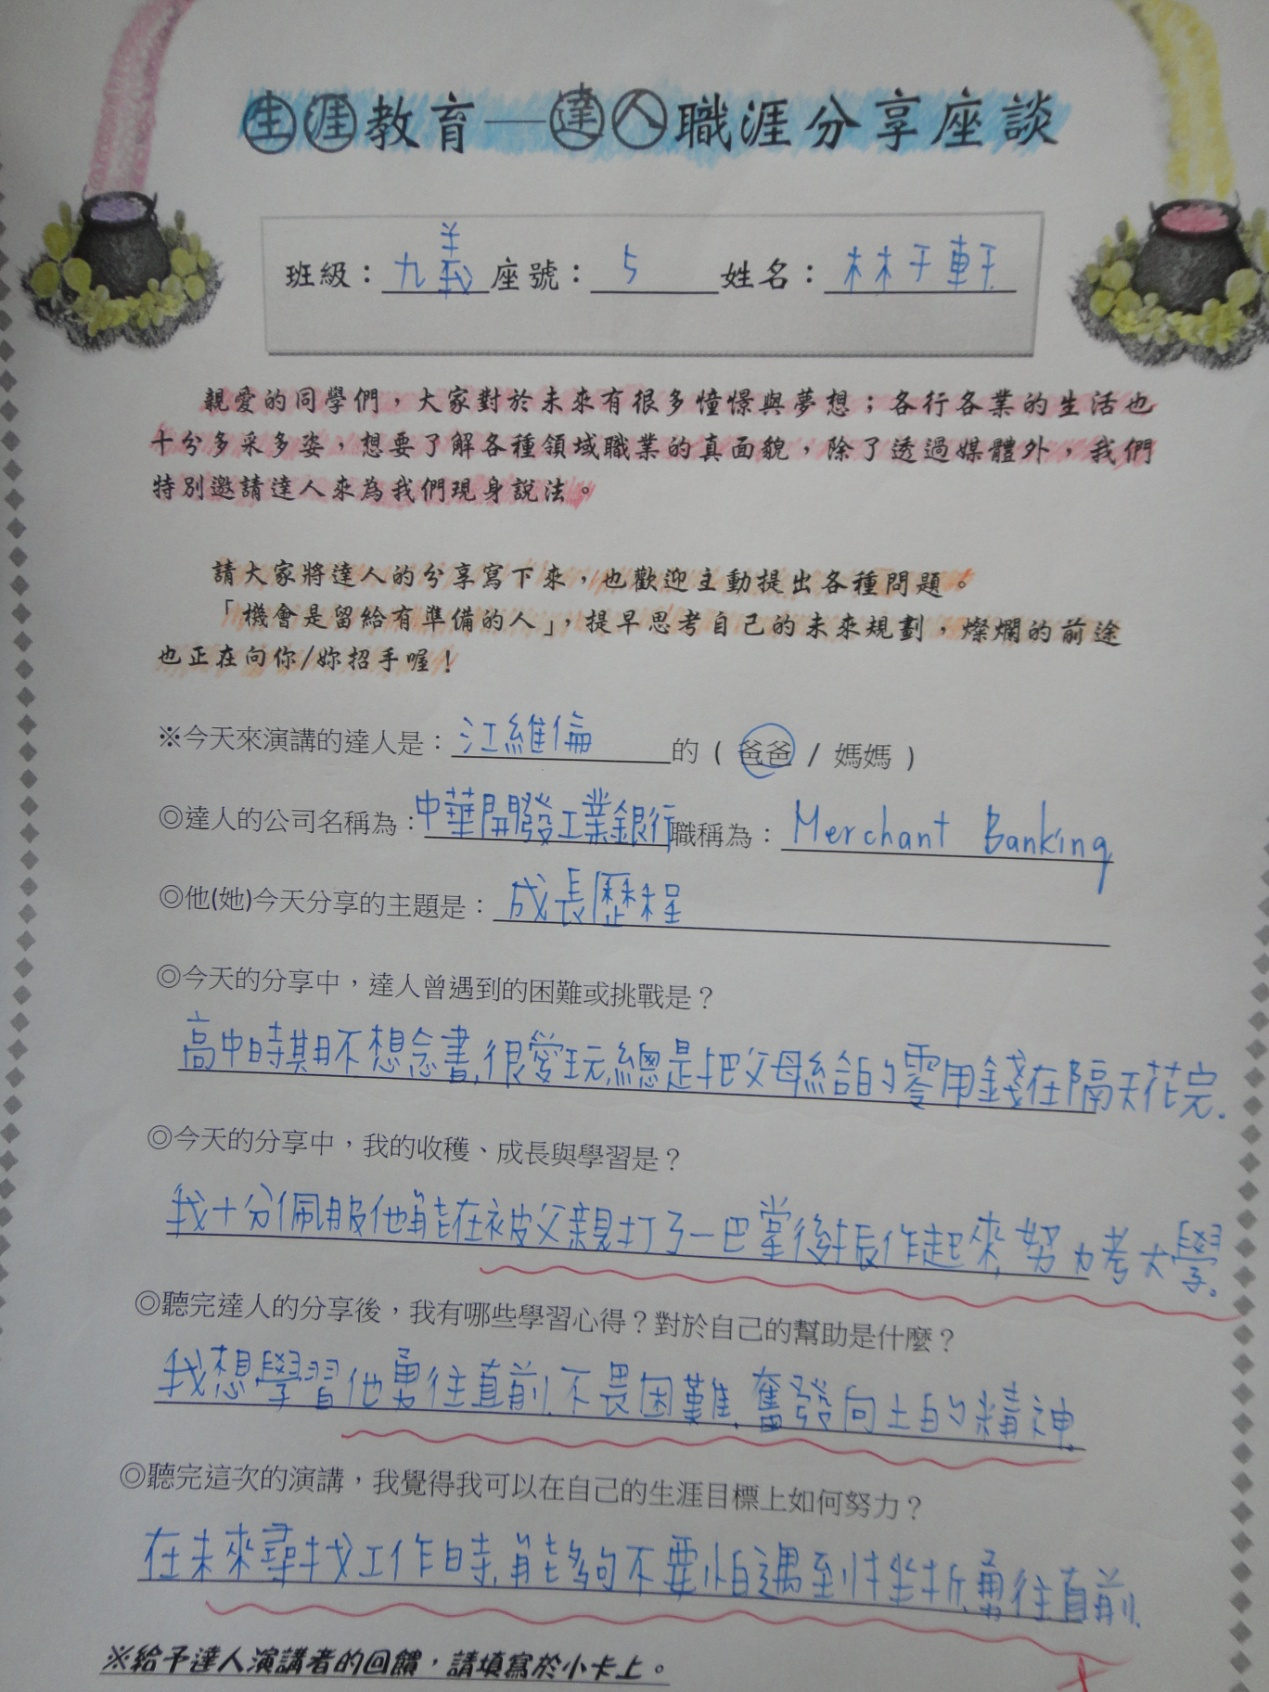 生涯教育—達人職涯分享座談
班級：九義座號：5 姓名：林于軒
親愛的同學們，大家對於未來有很多憧憬與夢想；各行各業的生活也
十分多采多姿，想要了解各種領域職業的真面貌，除了透過媒體外，我們
特別邀請達人來為我們現身說法。
請大家將達人的分享寫下來，也歡迎主動提出各種問題。
「機會是留給有準備的人」，提早思考自己的未來規劃，燦爛的前途
也正在向你/妳招手喔！
※今天來演講的達人是：江維倫的（爸爸 / 媽媽）
◎達人的公司名稱為：中華開發工業銀行職稱為：Merchant Banking
◎他(她)今天分享的主題是：成長歷程
◎今天的分享中，達人曾遇到的困難或挑戰是？
高中時期不想念書,很愛玩,總是把父母給的零用錢在隔天花完.
◎今天的分享中，我的收穫、成長與學習是？
我十分佩服他能在被父親打了一巴掌後振作起來,努力考大學.
◎聽完達人的分享後，我有哪些學習心得？對於自己的幫助是什麼？
我想學習他勇往直前,不畏困難,奮發向上的精神.
◎聽完這次的演講，我覺得我可以在自己的生涯目標上如何努力？
在未來尋找工作時,能夠不要怕遇到挫折,勇往直前.
※給予達人演講者的回饋，請填寫於小卡上。